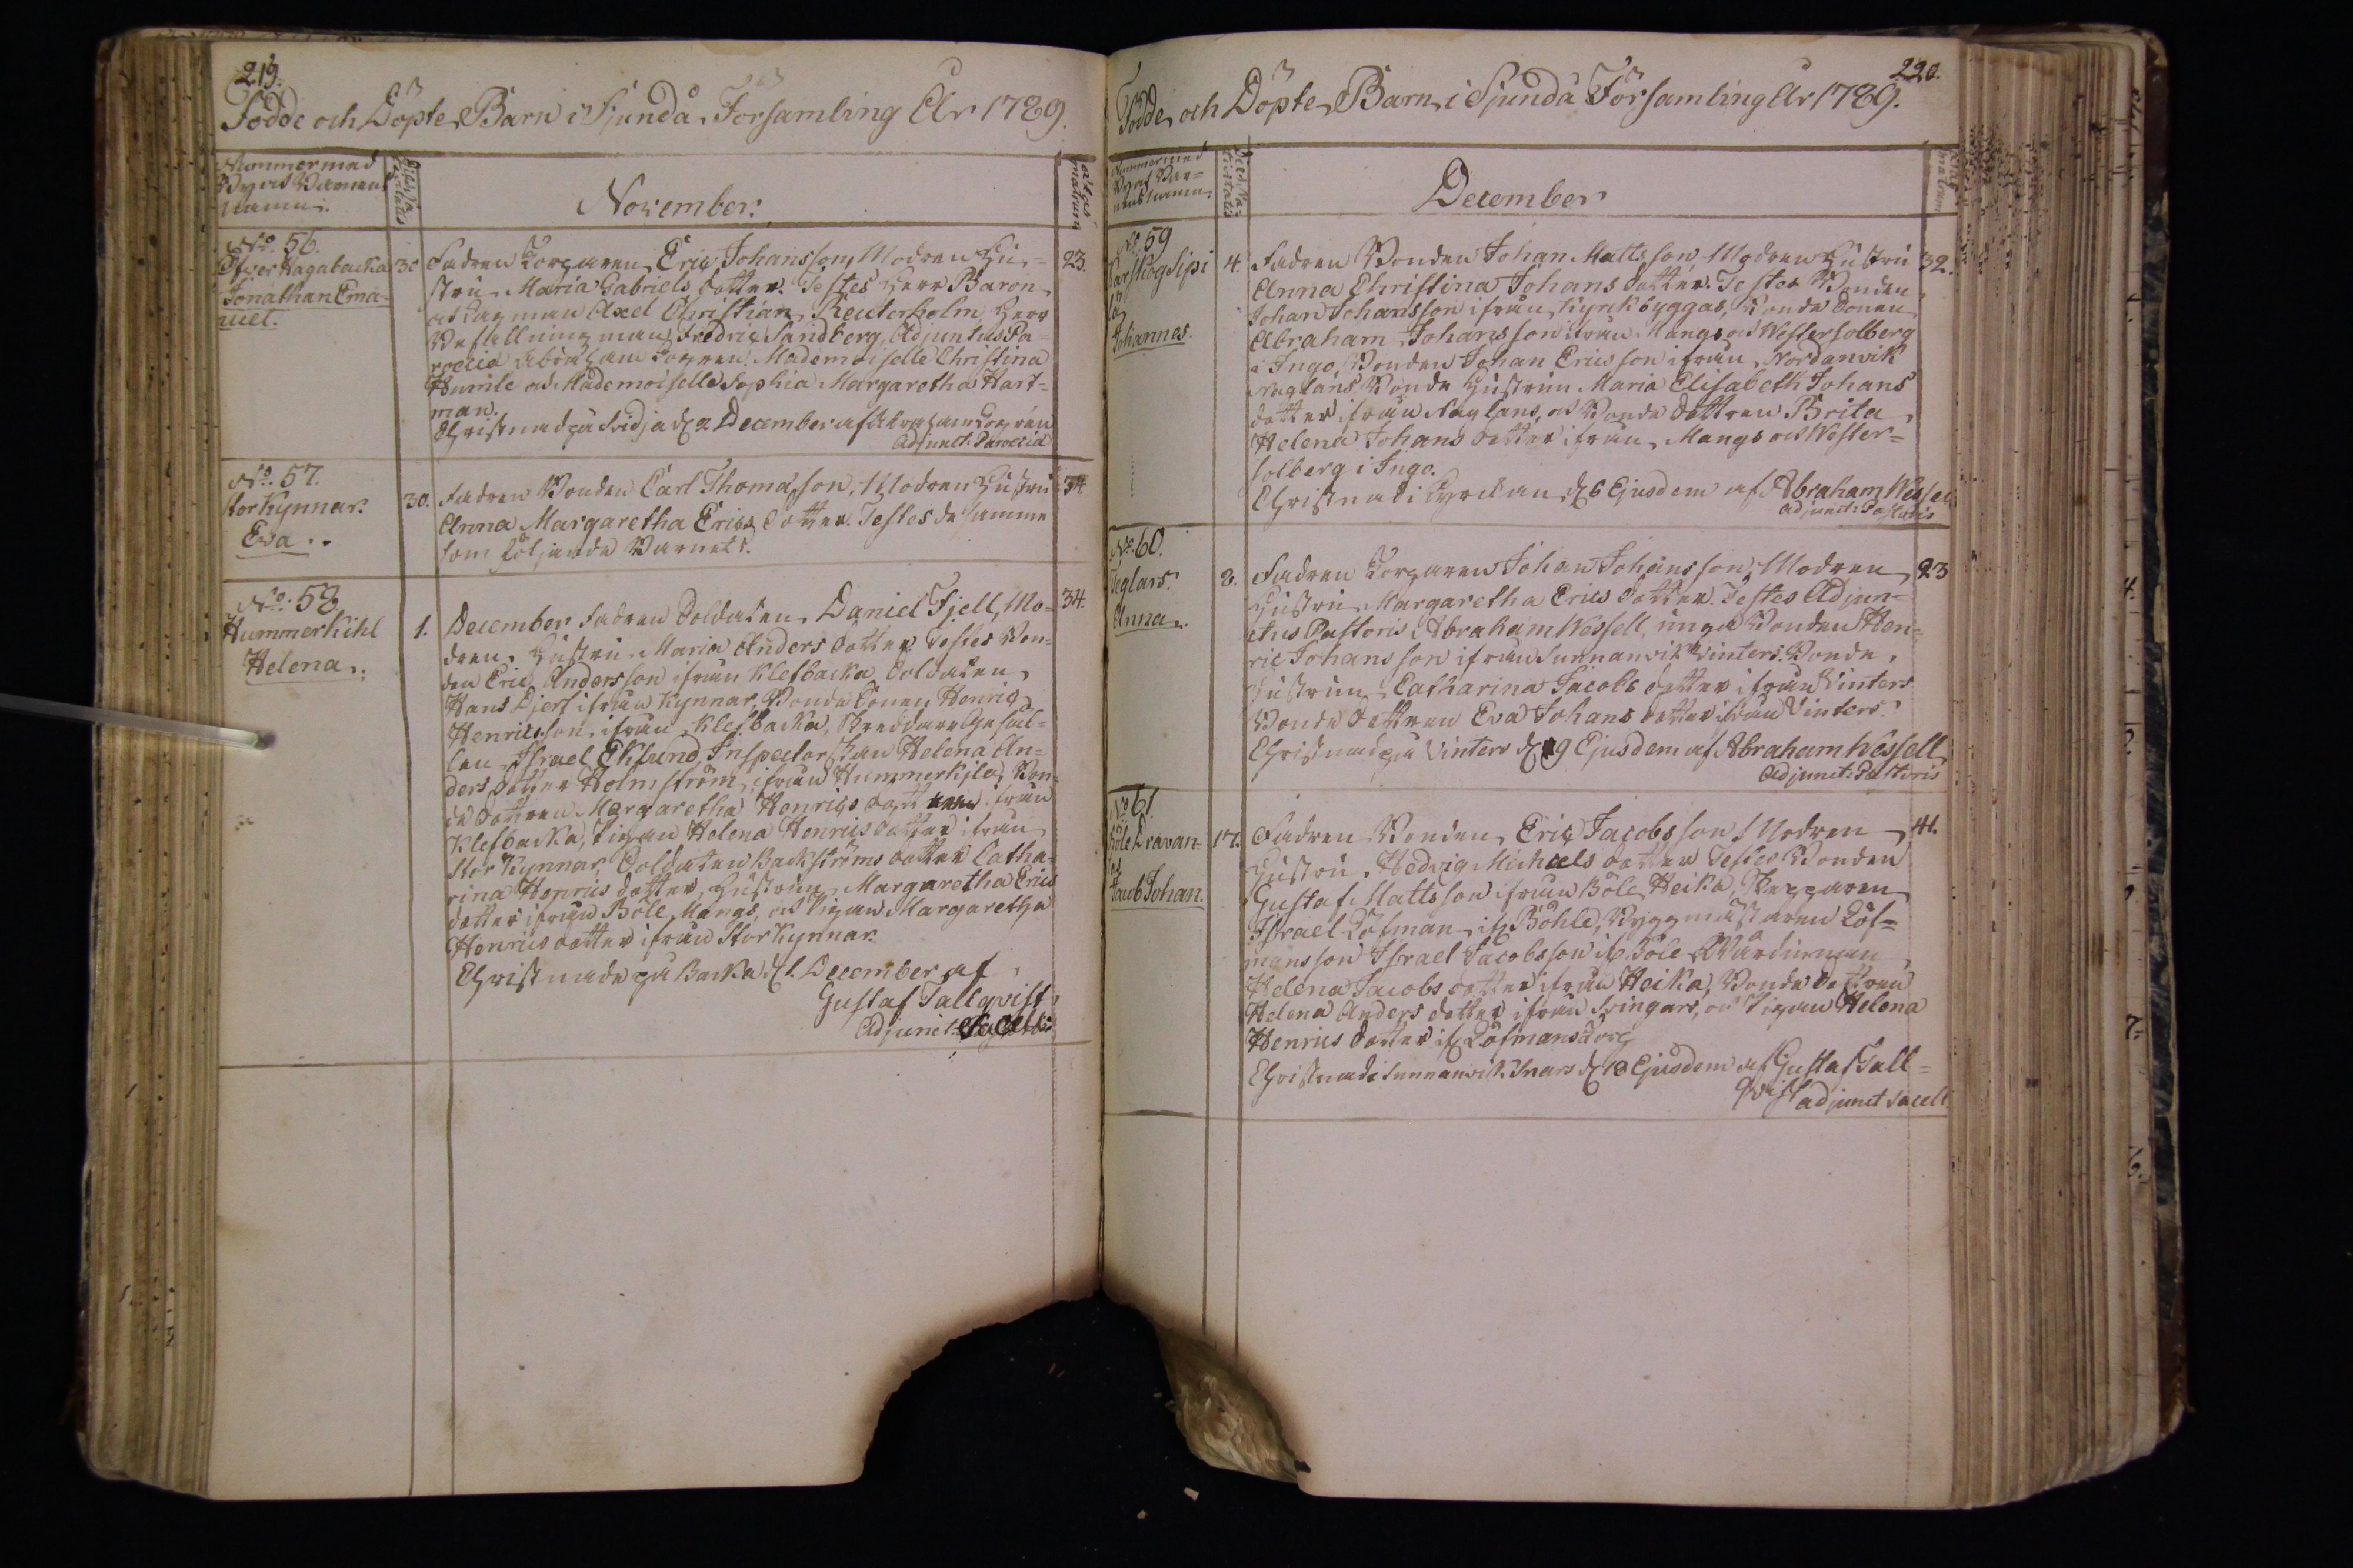 219.
Födde och Döpte Barn i Sjundå Församling År 1789.
Nummer med
Byns och Barnens
namn.
Dies Na-
tivitatis
November.
ætas
matrum
No. 56.
Öfver Kagabacka
Jonathan Ema-
nuel.
30
Fadren Torparen Eric Johansson, Modren Hu-
stru Maria Gabriels dotter. Testes Herr Baron
och Lagman Axel Christian Reuterholm, Herr
Befallningsman Fredric Sandberg, Adjunctus Pa-
roecia Abraham Mademoiselle Christina
Humle och Mademoiselle Sophia Margaretha Hart-
man.
Christnad på Svidja d. 2 December af Abraham
Adjunct. Paroecia
23.
No. 57.
Stor Kynnar.
Eva..
30.
Fadren Bonden Carl Thomasson, Modren Hustru
Anna Margaretha Erics dotter. Testes de samme
som följande Barnets.
34
No. 58
Hummerkihl
Helena..
1.
December Fadren Soldaten Daniel Fjell, Mo-
dren Hustru Maria Anders dotter Testes Bon-
den Eric Andersson ifrån Klefbacka, Soldaten
Hans Djerf ifrån Kynnar, Bonde Sonen Henric
Henricsson ifrån Klefbacka, Skreddare Gesäl-
len Israel Eklund, Inspectorskan Helena An-
ders dotter Holmström ifrån Hummerkila, Bon-
de dottren Margaretha Henrics dotter ifrån
Klefbacka, Pigan Helena Henrics dotter ifrån
Stor Kynnar, Soldaten Backströms dotter Catha-
rina Henrics dotter, Hustrun Margaretha Erics
dotter ifrån Böle Mangs, och Pigan Margaretha
Henrics dotter ifrån Stor Kynnar.
Christnade på Backa d. 1. December af
Gustaf Tallqvist
Adjunct. Sacell.
34.
220.
Födde och Döpte Barn i Sjundå Församling År 1789.
Nummer med
Byns och Bar-
nens namn.
Dies Na-
tivitatis
December
ætas
matrum
No. 59
Johannes.
4.
Fadren Bonden Johan Mattsson Modren Hustru
Anna Christina Johans dotter. Testes Bonden
Johan Johansson ifrån Kyrkbyggas, Bonde Sonen
Abraham Johansson ifrån Mangs och Westersolberg
i Ingo, Bonden Johan Ericsson ifrån Nordanvik
Naglans Bonde Hustrun Maria Elisabeth Johans
dotter ifrån Naglans, och Bonde dottren Brita
Helena Johans dotter ifrån Mangs och Wester-
solberg i Ingo.
Christnad i Kyrckan d. 6 Ejusdem af Abraham Wessell
Adjunct: Pastoris
32.
No. 60.
Anna.
8.
Fadren Torparen Johan Johansson, Modren
Hustru Margaretha Erics dotter. Testes Adjun-
ctus Pastoris Abraham Wessell, unga Bonden Hen-
ric Johansson ifrån Sunnanvik Vinters. Bonde
Hustrun Catharina Jacobs dotter ifrån Vinters
Bonde dottren Eva Johans dotter ifrån Vinters.
Christnad på Vinters d. 9 Ejusdem af Abraham Wessell
Adjunct: Pastoris
23
No. 61
Jacob Johan.
17.
Fadren Bonden Eric Jacobsson Modren
Hustru Hedvig Michaels dotter Testes Bonden
Gustaf Mattsson ifrån Böle Heika,
Israel Löfman if. Böhle, Byggmästaren Löf-
mans son Israel Jacobsson if. Böle
Helena Jacobs dotter ifrån Heika, Bonde dottren
Helena Anders dotter ifrån Svingars, och Pigan Helena
Henrics dotter if. Löfmans torp
Christnad i Sunnanvik d. 18 Ejusdem af Gustaf Tall-
qvist adjunct sacell.
41.